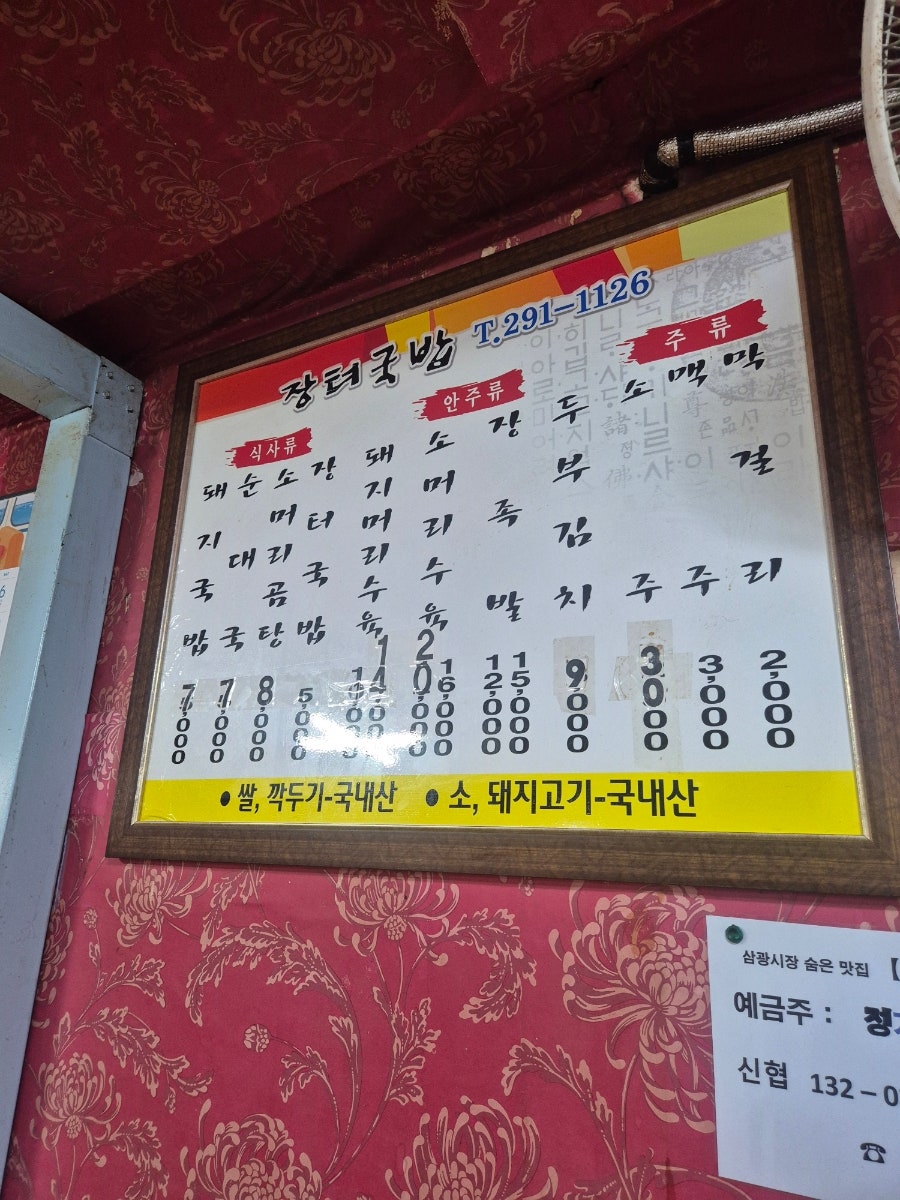 장터국밥 T.291-1126
식사류
돼지국밥 7,000
순대국 7,000
소머리곰탕 8,000
장터국밥 5,000
안주류
돼지머리수육
소머리수육
장족발 12,000 15,000
두부김치 9,000
주류
소주 3,000
맥주 3,000
막걸리 2,000
● 쌀, 깍두기-국내산 ● 소, 돼지고기-국내산
삼광시장 숨은 맛집 [
예금주 :
신협 132 – 0
☎